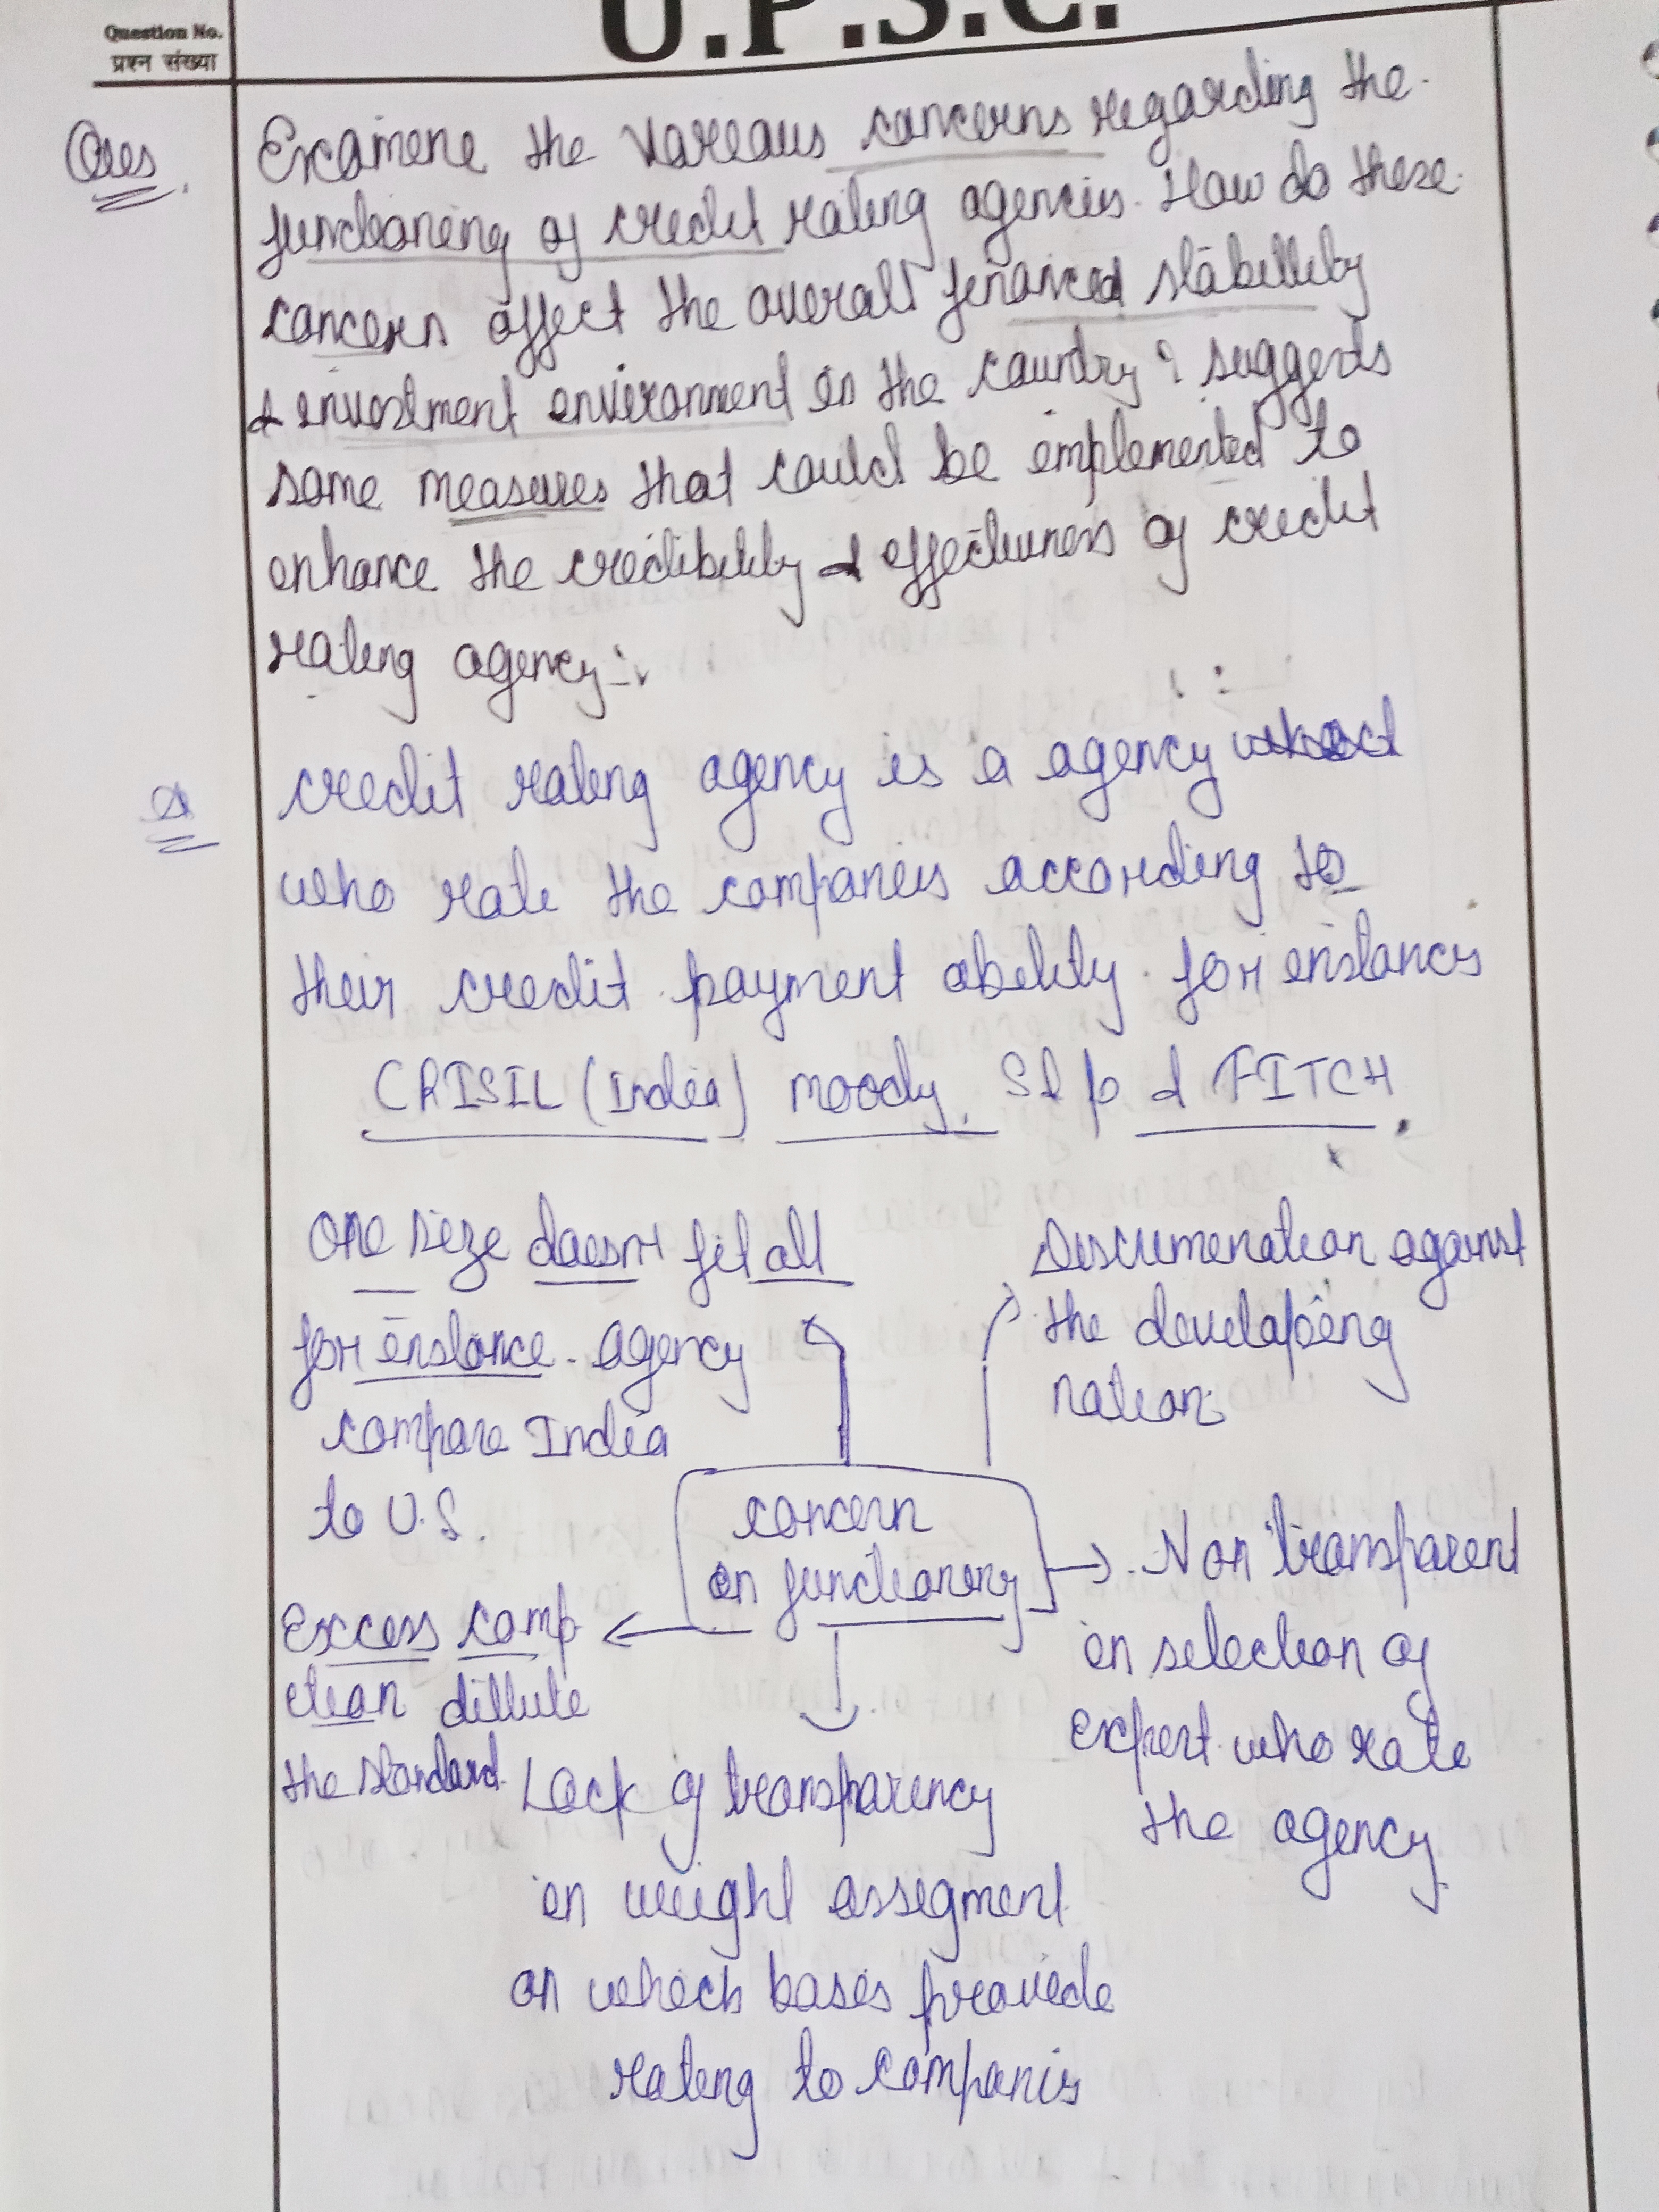 Question No.
प्रश्न संख्या
U.P.S.C.
Ques.
Examine the various concerns regarding the
functioning of credit rating agencies. How do these
concern affect the overall financial stability
& investment environment in the country? suggests
some measures that could be implemented to
enhance the credibility & effectiveness of credit
rating agency:-
credit rating agency is a agency
who rate the companies according to
their credit payment ability. for instances
CRISIL (India) moody, S&p & FITCH.
one size doesn't fit all
for instance. agency
compare India
to U.S.
Discrimenation against
the developing
nation
concern
on functioning
Non transparent
in selection of
expert who rate
the agency
Excess comp
etion dillute
the standard.
Lack of transparency
in weight assigment
on which bases provide
rating to companies